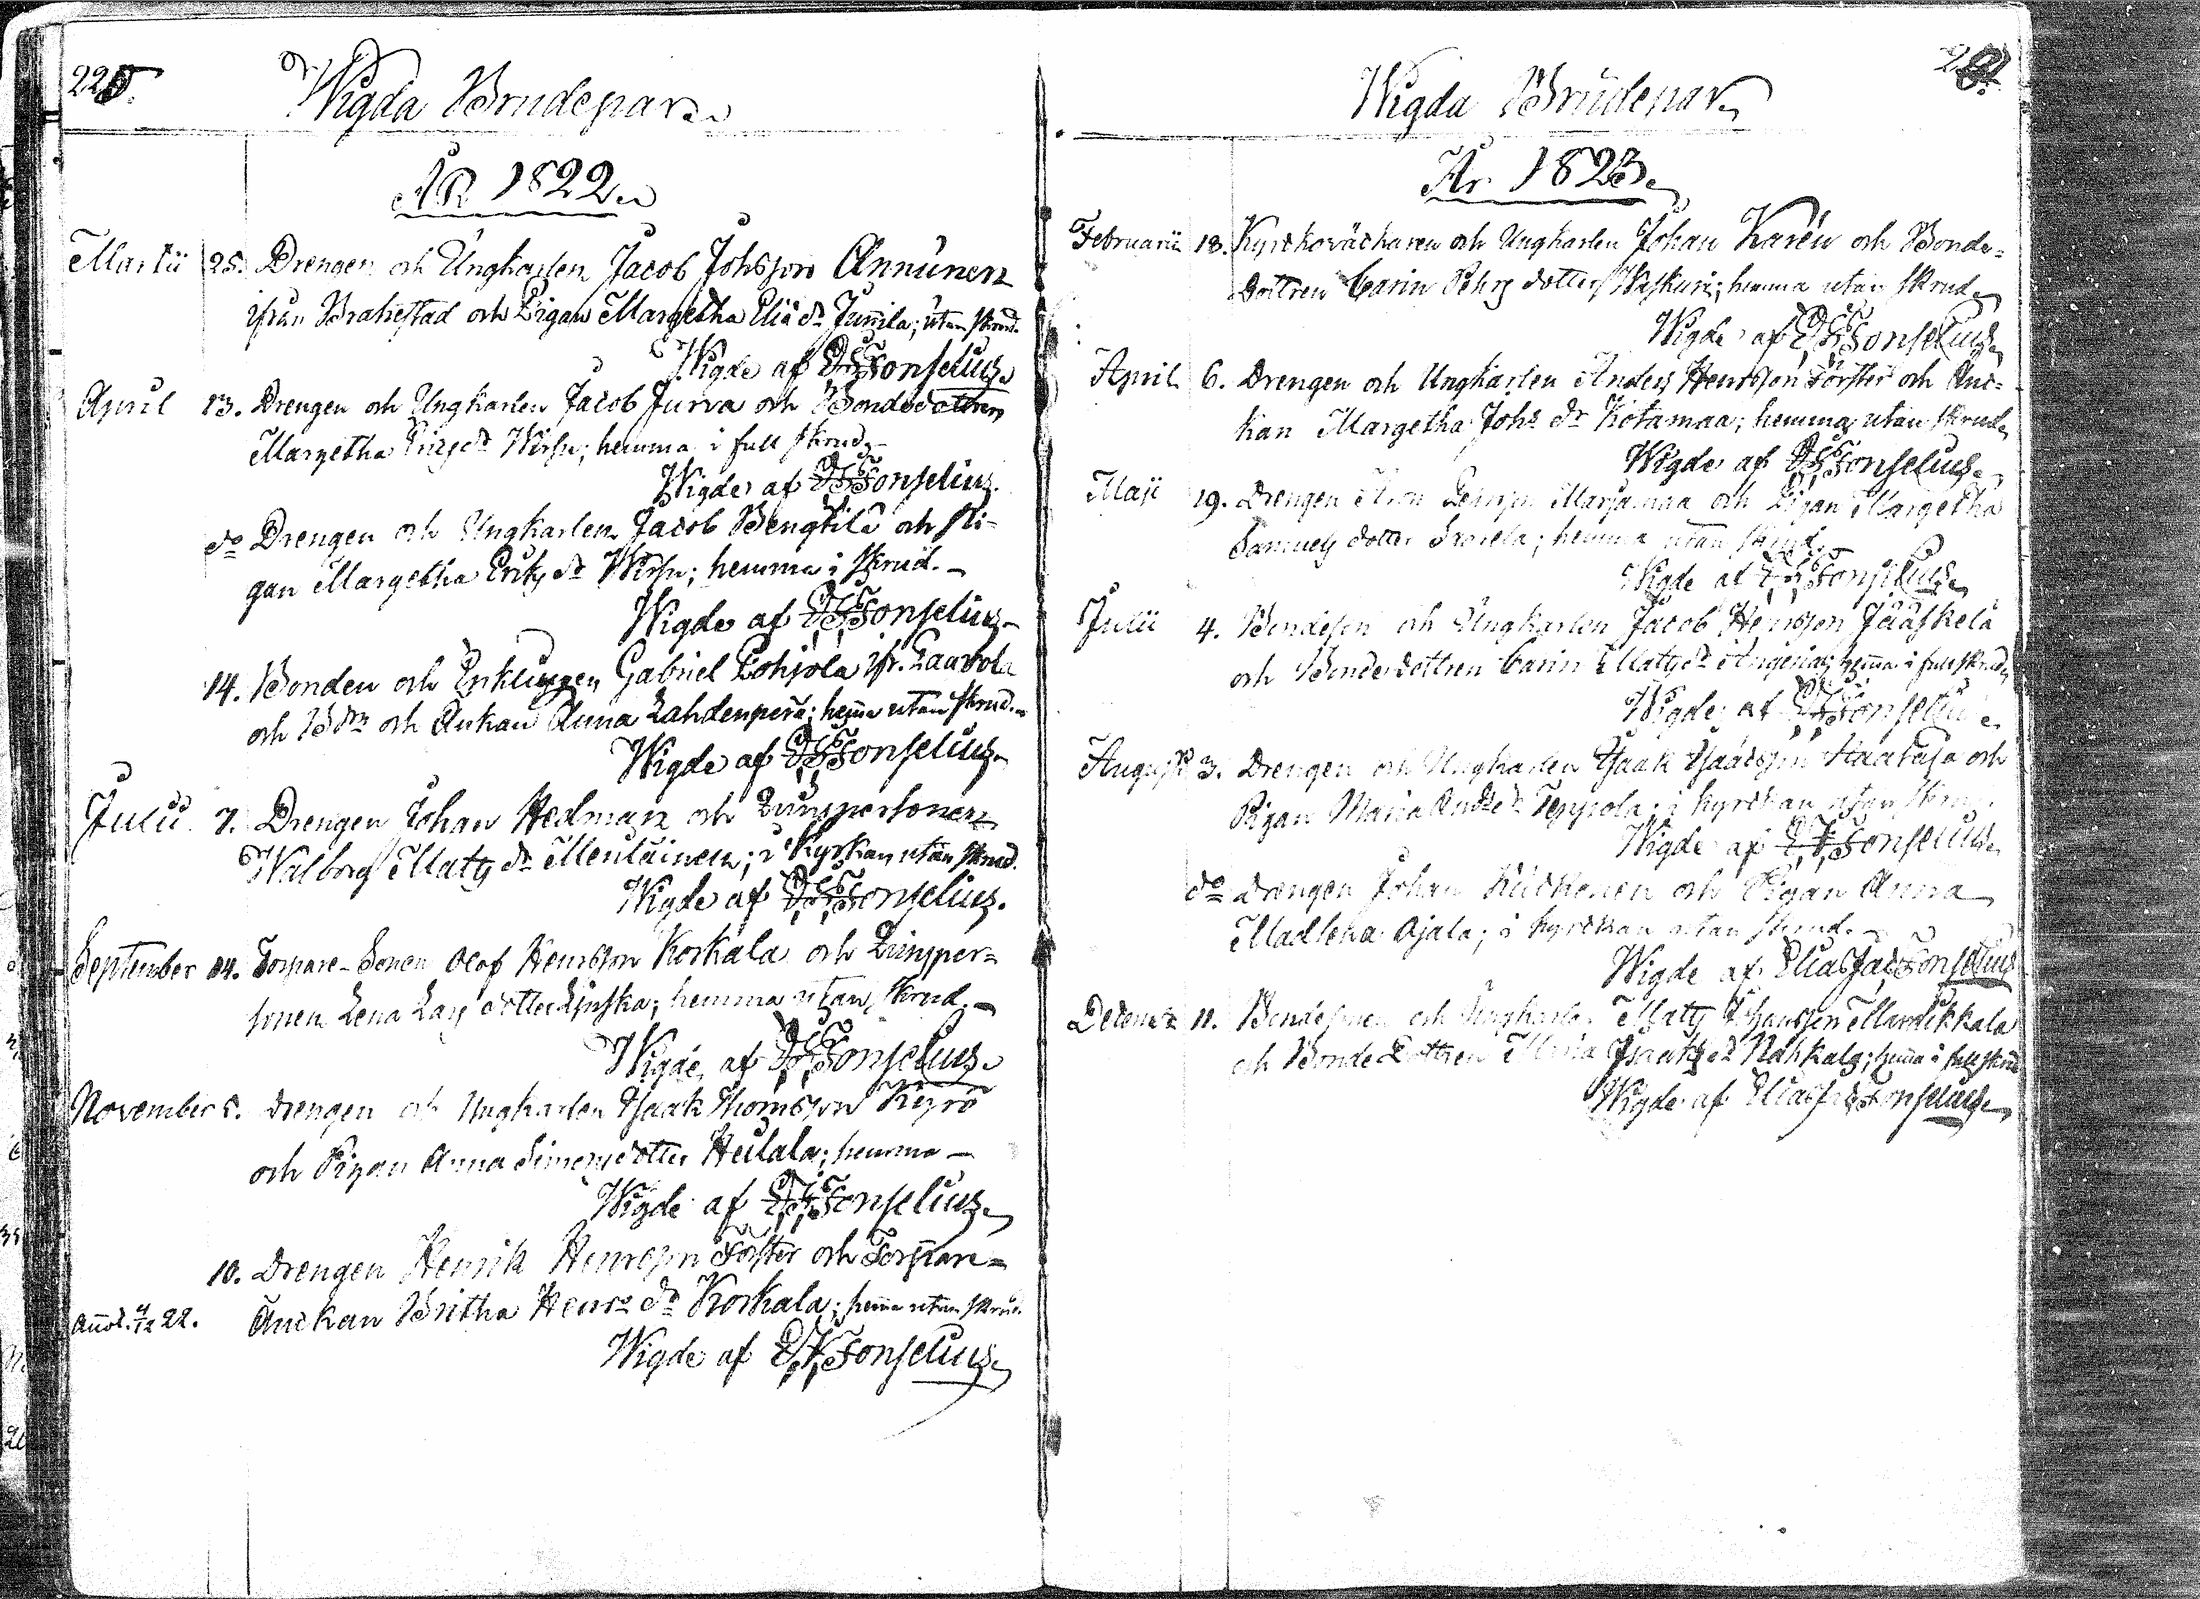 Wigda Brudepar.
ÅR 1822.
Martii 25. Drengen och Ungkarlen Jacob Johsson Annunen
ifrån Brahestad och Pigan Margetha Eliæ dr Junnila; utan skrud.
Wigde af E J Fonselius.
April 13. Drengen och Ungkarlen Jacob Jurva och Bondedottren
Margetha dr Wirsu; hemma i full skrud.
Wigde af E J Fonselius.
do Drengen och Ungkarlen Jacob Bengtilä och Pi-
gan Margetha Eriks dr Wirsu; hemma i skrud.
Wigde af E J Fonselius.
14. Bonden och Enklingen Gabriel Pohjola ifr. Paavola
och och Enkan Anna Lahdenperä; hema utan skrud.
Wigde af E J Fonselius.
Julii 7. Drengen Johan Hedman och Qvinspersonen
Walborg Matts dr Meulainen; i Kyrkan utan skrud.
Wigde af E J Fonselius.
September 14. Torpare-Sonen Olof Henrsson Korkala och Qvinsper-
sonen Lena Lars dotter; hemma utan skrud.
Wigde af E J Fonselius.
November 5. Drengen och Ungkarlen Isaak Thomsson Kyrö
och Pigan Anna Simons dotter Heilala; hemma
Wigde af E J Fonselius.
10. Drengen Henrik Henrsson Forster och Torpare-
Enckan Britha Henrs dr Korkala; hema utan skrud.
22.
Wigde af E J Fonselius.
Wigda Brudepar.
År 1823.
Februarii 18. Kyrckoväcktaren och Ungkarlen Johan Karén och Bonde-
Dottren Carin Pehrs dotter Waskuri; hemma utan skrud.
Wigde af E J Fonselius.
April 6. Drengen och Ungkarlen Anders Henrsson Förster och Enc-
kan Margetha Johs dr Kotamaa; hemma utan skrud.
Wigde af E J Fonselius.
Maji 19. Drengen Marjamaa och Pigan Margetha
Samuels dotter; hemma utan skrud.
Wigde af E J Fonselius.
Julii 4. Bondeson och Ungkarlen Jacob Henrsson Jääskelä
och Bondedottren Carin Matts dr; hema i full skrud.
Wigde af E J Fonselius.
Augusti 3. Drengen och Ungkarlen Isaak Isaacsson och
Pigan Maria Andrs dr Teppola; i Kyrckan utan skrud.
Wigde af E J Fonselius.
do Drengen Johan och Pigan Anna
Madlena Ojala; i Kyrckan utan skrud.
Wigde af Elias Jac. Fonselius
Decembr 11. Bondesonen och Ungkarlen Matts Johansson
och Bonde Dottren Maria Isaaks dr Nahkala; hema i full skrud
Wigde af Elias Jac Fonselius.